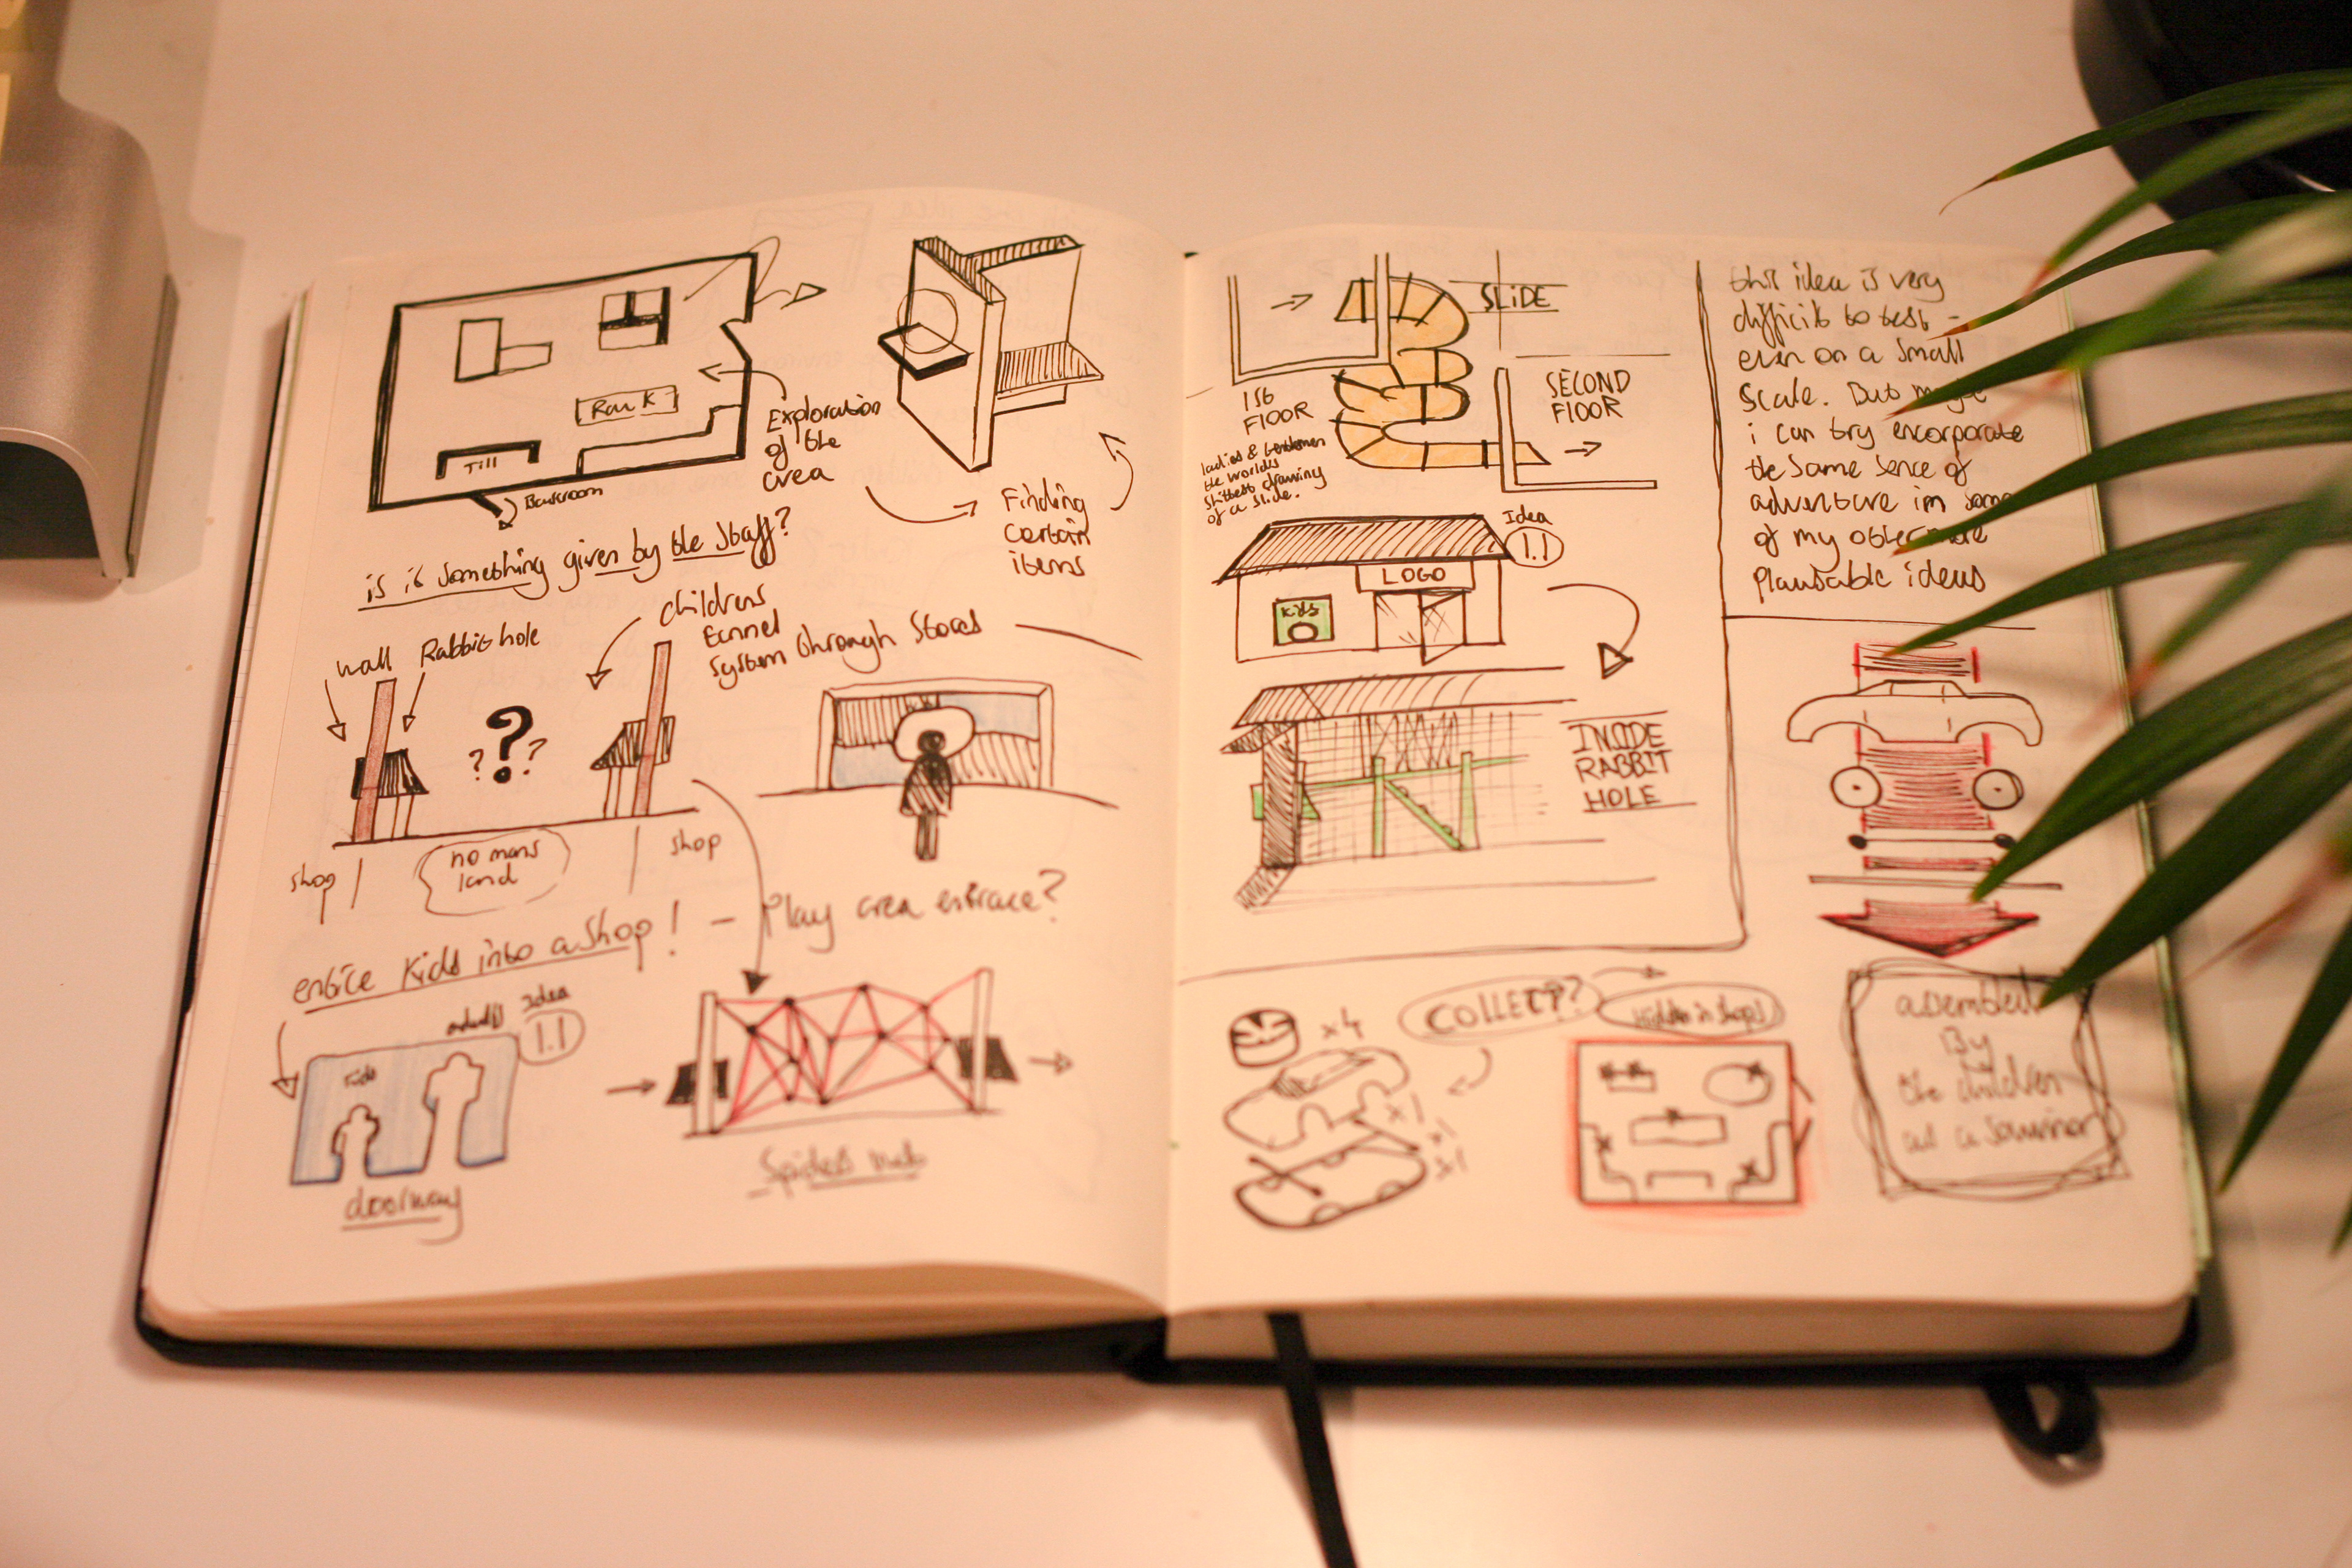 Till
Backroom
Exploration
of the
area
Finding
certain
items
is it something given by the staff?
wall
Rabbit hole
childrens
tunnel
system through stores
?
? ?
shop
no mans
land
shop
entice kids into a shop! - Play area entrace?
Idea
1.1
adults
kids
doorway
Spiders web
SLIDE
1st
FLOOR
SECOND
FLOOR
ladies & Gentlemen
the worlds
shittest drawing
of a slide.
Idea
1.1
LOGO
Kids
INSIDE
RABBIT
HOLE
this idea is very
difficilt to test -
even on a small
scale. But maybe
i can try encorporate
the same sence of
adventure in some
of my other more
plausable ideas
COLLECT?
Hidden in shops
x4
x1
x1
x1
assembled
By
the children
as a souvinor